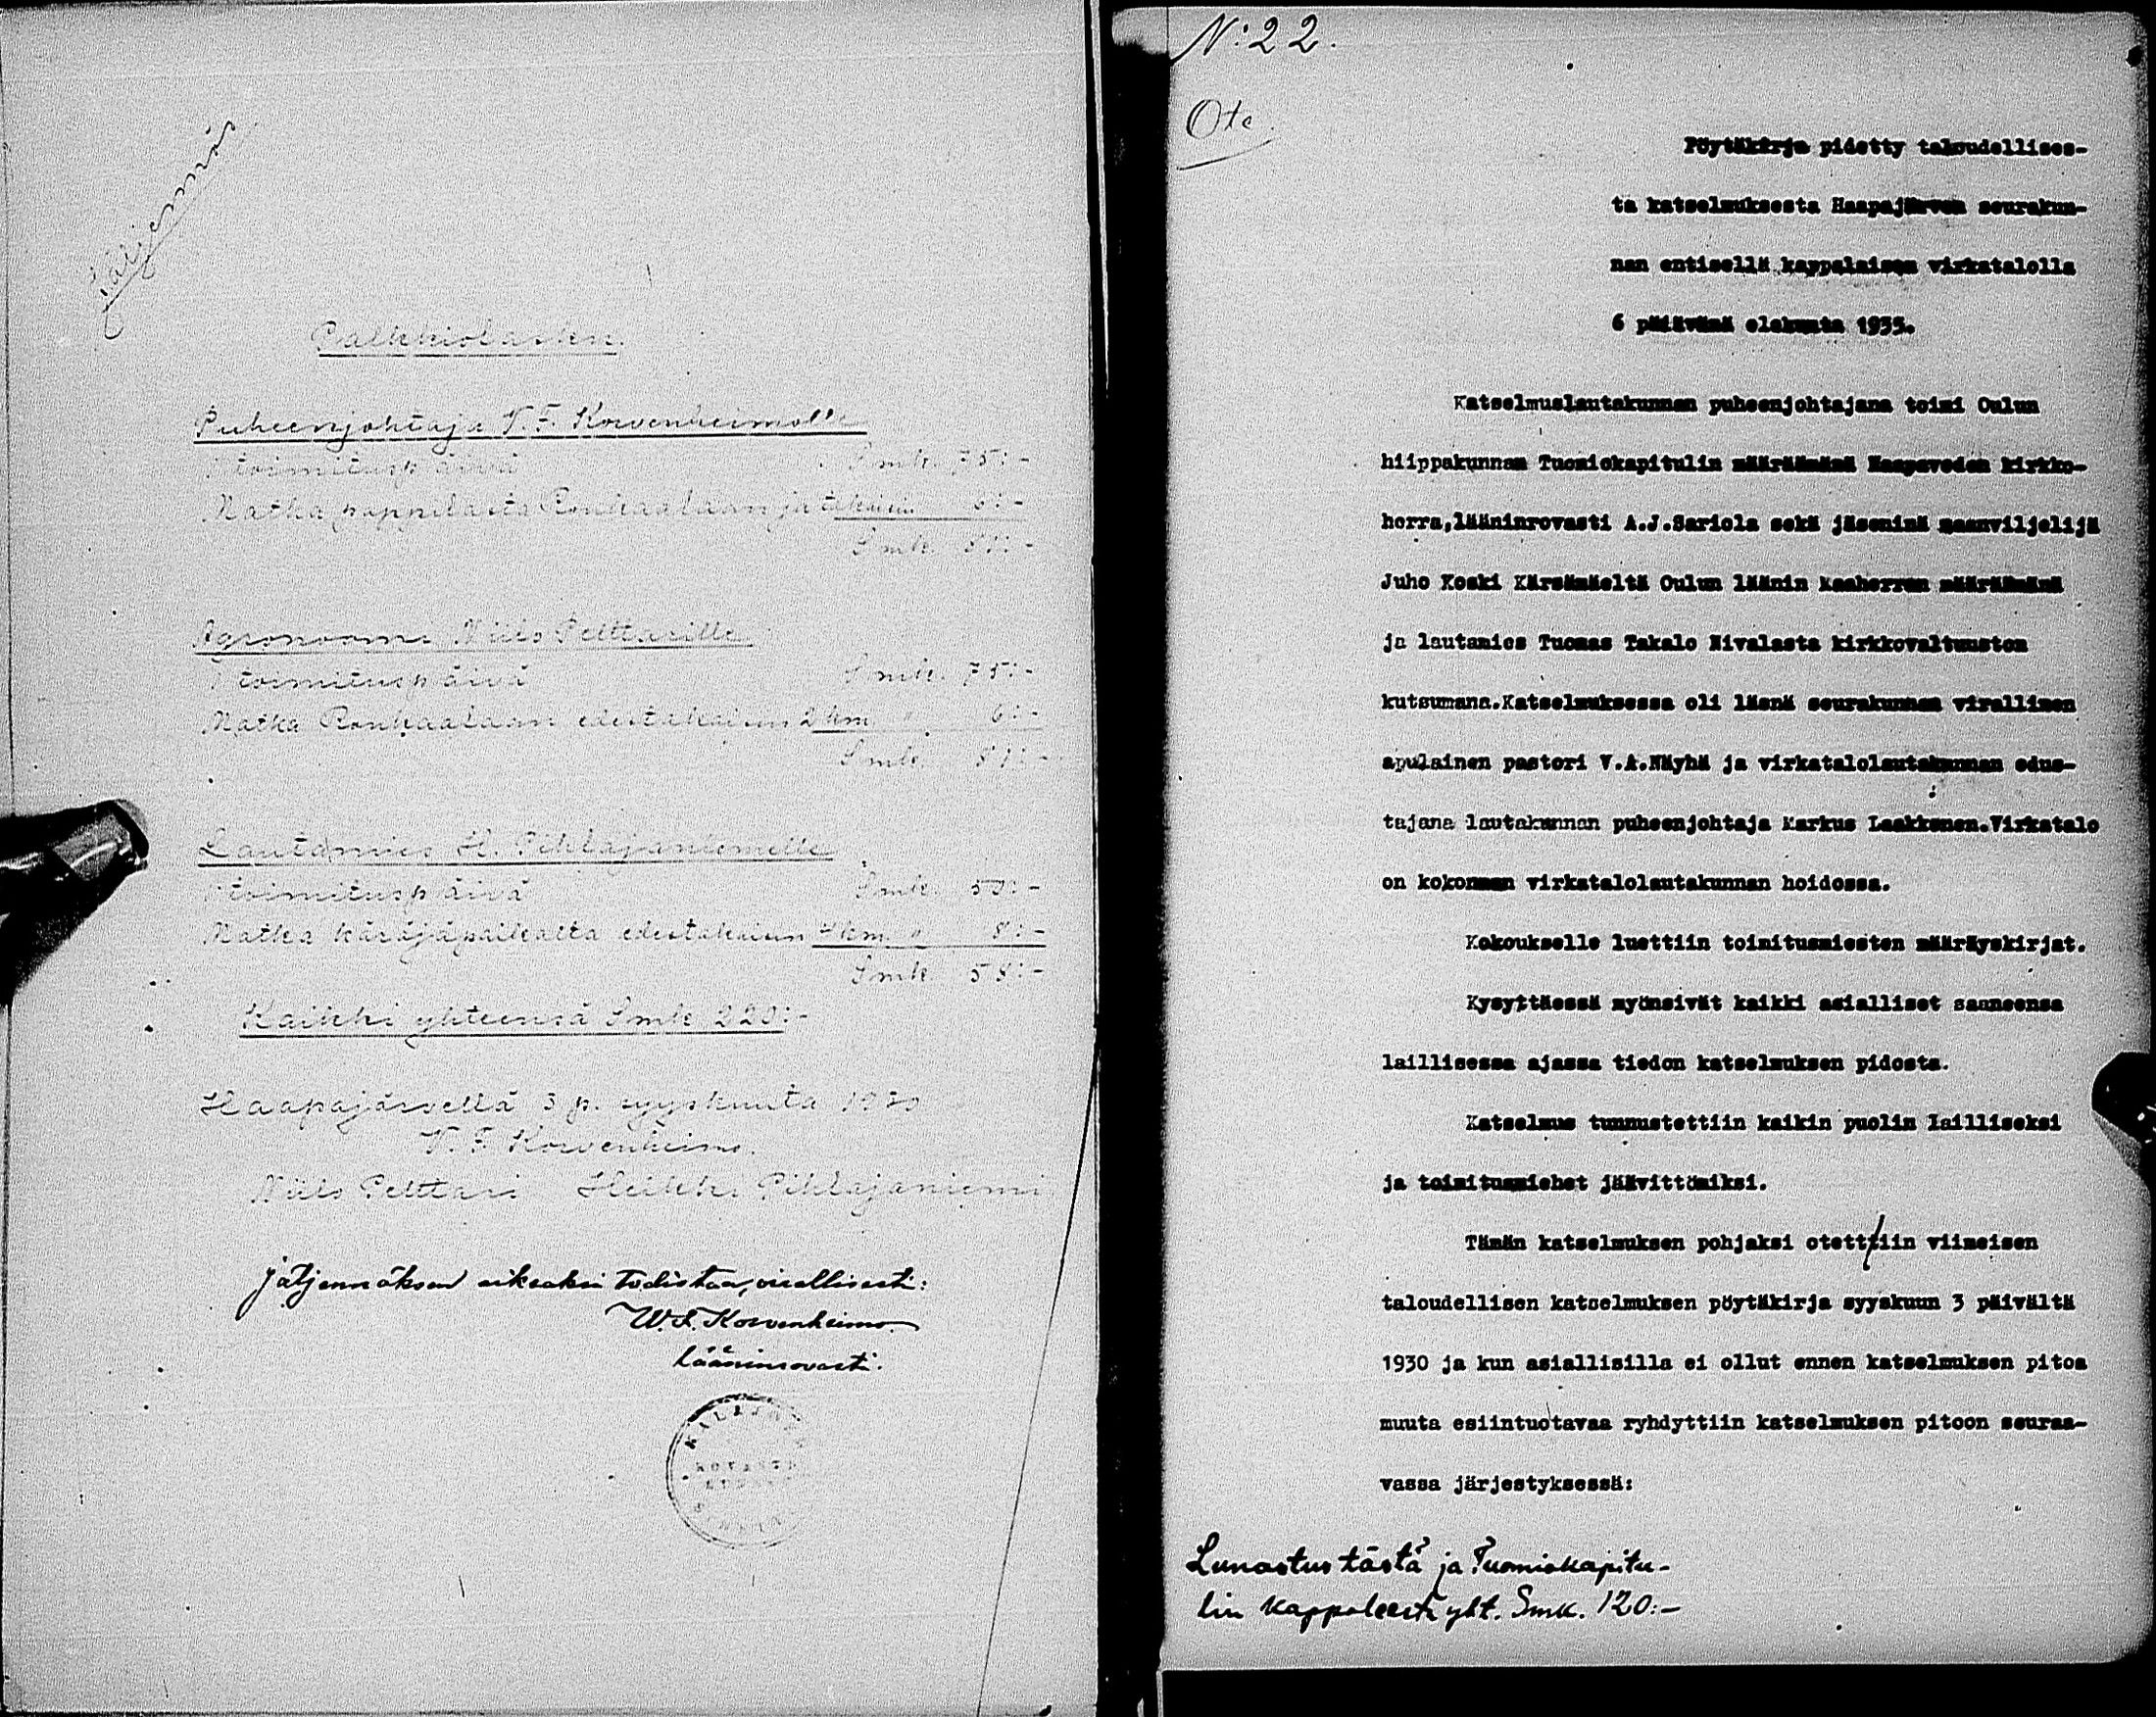 Jäljennös
Palkkiolasku.
Puheenjohtaja V. F. Korvenheimolle
1 toimituspäivä Smk. 75:-
Matka pappilasta Ronkaalaan ja takaisin 6:-
Smk. 81:-
Agronoomi Niilo Pelttarille
1 toimituspäivä Smk. 75:-
Matka Ronkaalaan edestakaisin 2 km " 6:-
Smk. 81:-
Lautamies H. Pihlajaniemelle
1 toimituspäivä Smk. 50:-
Matka käräjäpaikalta edestakaisin 4 km " 8:-
Smk 58:-
Kaikki yhteensä Smk 220:-
Haapajärvellä 3 p. syyskuuta 1930
V. F. Korvenheimo.
Niilo Pelttari Heikki Pihlajaniemi
Jäljennöksen oikeaksi todistaa, virallisesti:
W. F. Korvenheimo.
lääninrovasti.
N:22.
Ote.
Pöytäkirja pidetty taloudellises-
ta katselmuksesta Haapajärven seurakun-
nan entisellä kappalaisen virkatalolla
6 päivänä elokuuta 1935.
Katselmuslautakunnan puheenjohtajana toimi Oulun
hiippakunnan Tuomiokapitulin määräämänä Haapaveden kirkko-
herra,lääninrovasti A.J.Sariola sekä jäseninä maanviljelijä
Juho Koski Kärsämäeltä Oulun läänin maaherran määräämänä
ja lautamies Tuomas Takalo Nivalasta kirkkovaltuuston
kutsumana.Katselmuksessa oli läsnä seurakunnan virallinen
apulainen pastori V.A.Näyhä ja virkatalolautakunnan edus-
tajana lautakunnan puheenjohtaja Markus Laakkonen.Virkatalo
on kokonaan virkatalolautakunnan hoidossa.
Kokoukselle luettiin toimitusmiesten määräyskirjat.
Kysyttäessä myönsivät kaikki asialliset saaneensa
laillisessa ajassa tiedon katselmuksen pidosta.
Katselmus tunnustettiin kaikin puolin lailliseksi
ja toimitusmiehet jäävittömiksi.
Tämän katselmuksen pohjaksi otettiin viimeisen
taloudellisen katselmuksen pöytäkirja syyskuun 3 päivältä
1930 ja kun asiallisilla ei ollut ennen katselmuksen pitoa
muuta esiintuotavaa ryhdyttiin katselmuksen pitoon seuraa-
vassa järjestyksessä:
Lunastus tästä ja Tuomiokapitu-
lin kappaleesta yht. Smk. 120:-